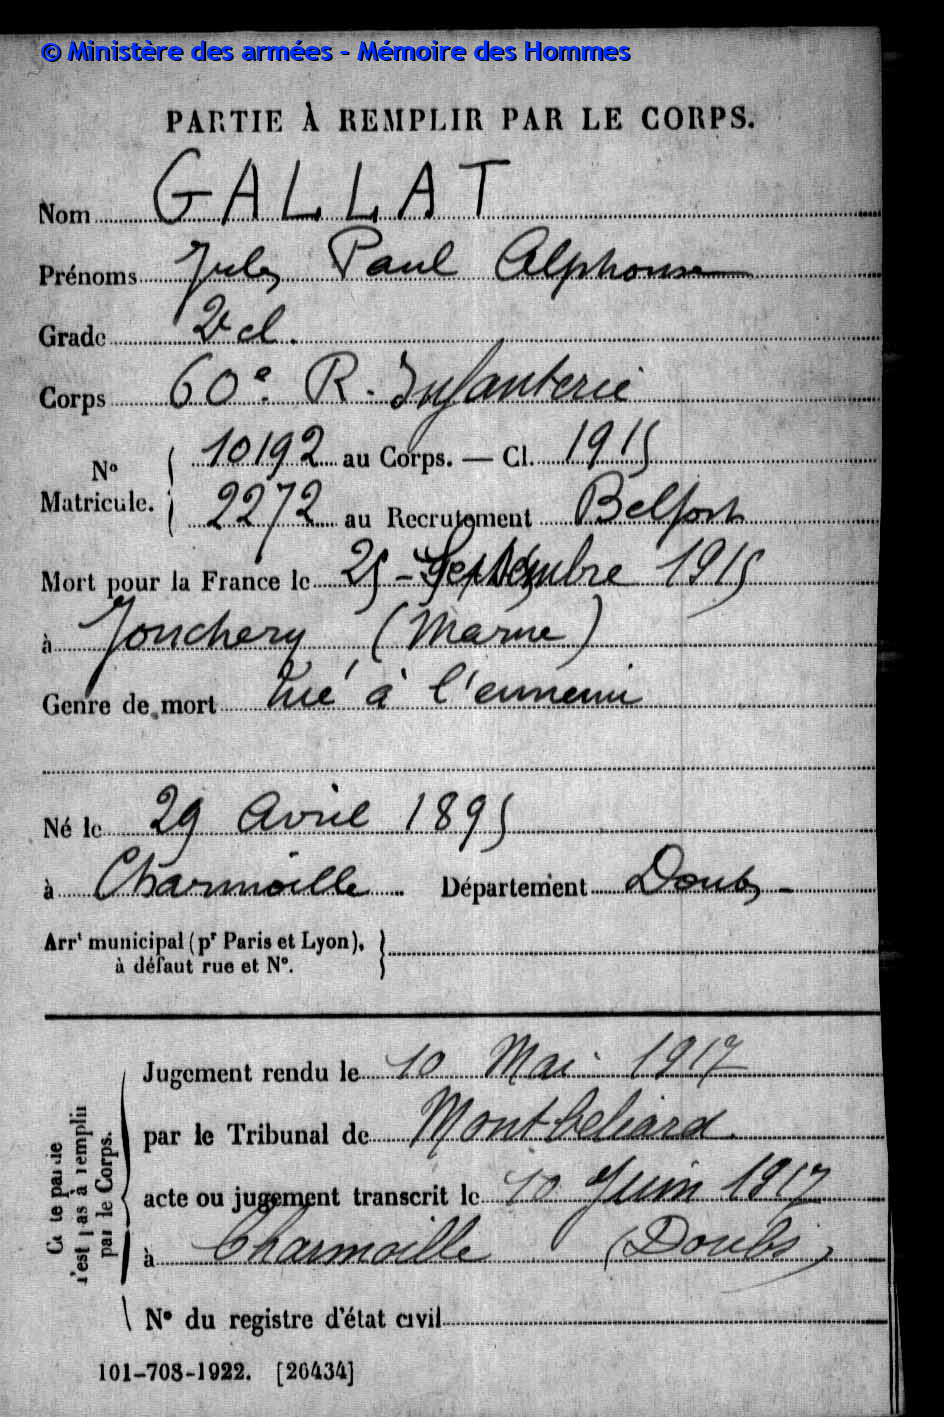 © Ministère des armées - Mémoire des Hommes
PARTIE À REMPLIR PAR LE CORPS.
Nom GALLAT
Prénoms Jules Paul Alphonse
Grade 2e cl.
Corps 60e R. Infanterie
N° Matricule. 10192 au Corps. — Cl. 1915
2272 au Recrutement Belfort
Mort pour la France le 25 - Septembre 1915
à Jonchery (Marne)
Genre de mort tué à l'ennemi
Né le 29 Avril 1895
à Charmoille Département Doubs -
Arrt municipal (pr Paris et Lyon),
à défaut rue et N°.
Cette partie n'est pas à remplir par le Corps.
Jugement rendu le 10 Mai 1917
par le Tribunal de Montbeliard
acte ou jugement transcrit le 10 Juin 1917
à Charmoille (Doubs)
N° du registre d'état civil
101-708-1922. [26434]